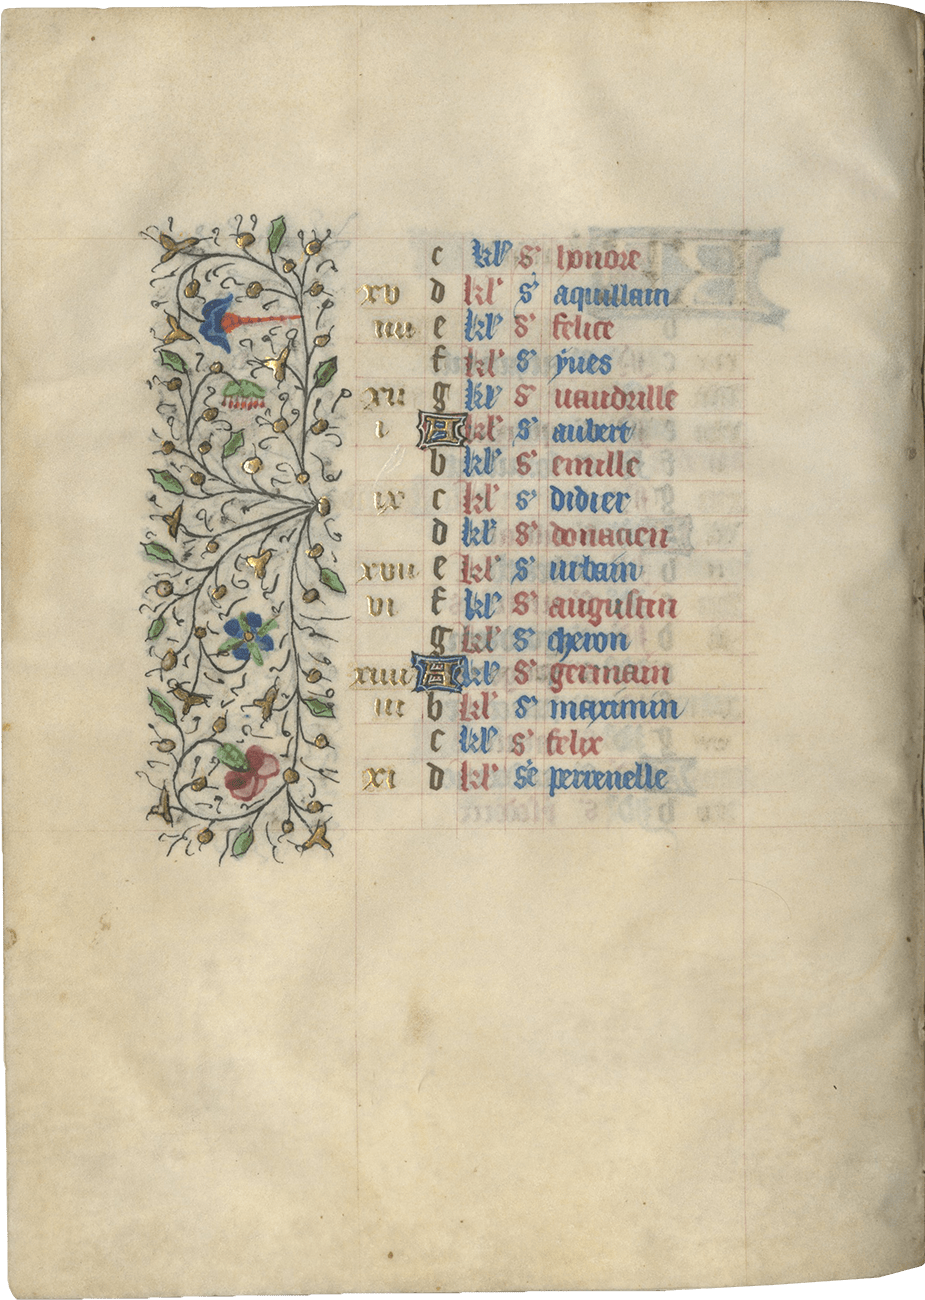 c kl' s' honore
xv d kl' s' aquillain
iiii e kl' s' felice
f kl' s' yues
xii g kl' s' uaudrille
i A kl' s' aubert
b kl' s' emille
ix c kl' s' didier
d kl' s' donacien
xvii e kl' s' urbain
vi f kl' s' augustin
g kl' s' cheron
xiiii A kl' s' germain
iii b kl' s' maximin
c kl' s' felix
xi d kl' s'e perrenelle